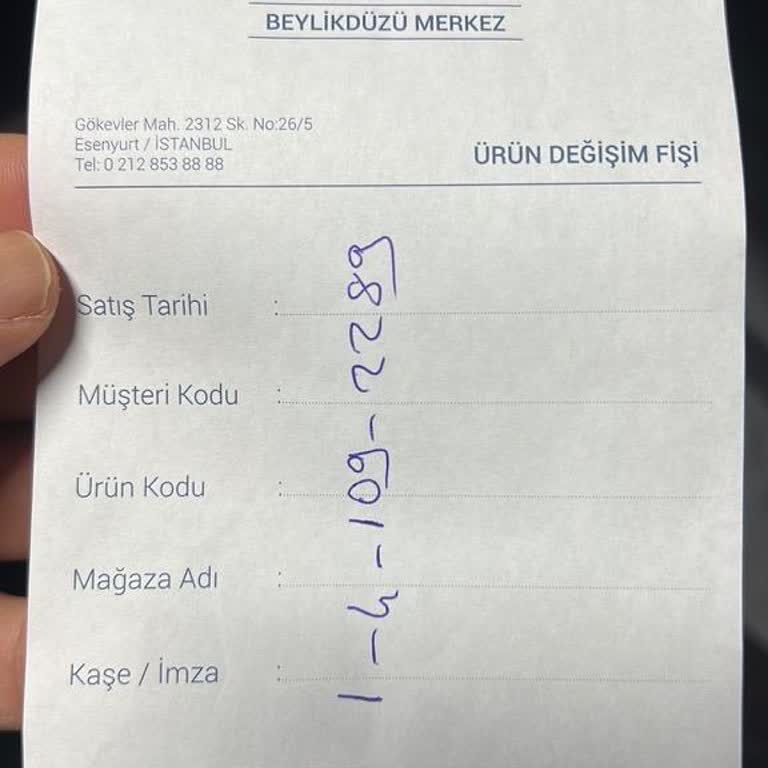 BEYLİKDÜZÜ MERKEZ
Gökevler Mah. 2312 Sk. No:26/5
Esenyurt / İSTANBUL
Tel: 0 212 853 88 88
ÜRÜN DEĞİŞİM FİŞİ
Satış Tarihi :
Müşteri Kodu :
Ürün Kodu :
Mağaza Adı :
Kaşe / İmza :
1-4-109-2289